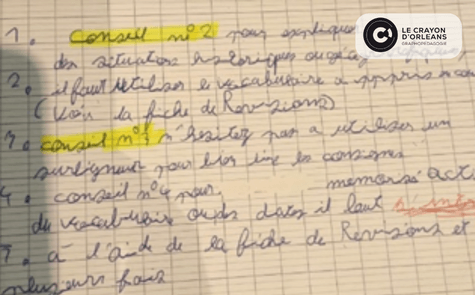 LE CRAYON
D'ORLEANS
GRAPHOPÉDAGOGIE
1. Conseil n°2 pour expliquer
des situations historiques ou géographiques
2. il faut utiliser le vocabulaire a appris
(Voir la fiche de Revisions)
3. conseil n°3 n'hesitez pas a utiliser un
surligneur pour bien lire les consignes
4. conseil n°4 pour memorsé
du vocabulaire ou des dates il faut
5. a l'aide de la fiche de Revisions et
plusieurs fois